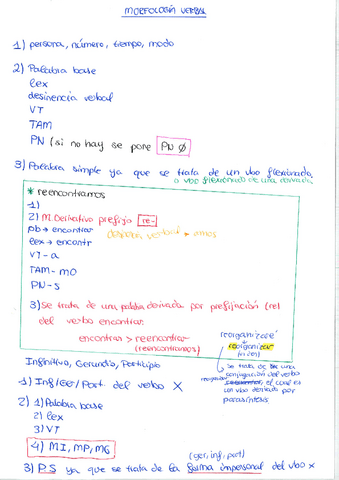 MORFOLOGÍA VERBAL
1) persona, número, tiempo, modo
2) Palabra base
lex
desinencia verbal
VT
TAM
PN (si no hay se pone PN Ø
3) Palabra simple ya que se trata de un vbo flexionado
o vbo flexionado de una derivada
* reencontramos
1)
2) M. Derivativo prefijo re-
pb → encontrar
desinencia verbal → amos
lex → encontr
VT - a
TAM - mo
PN - s
3) Se trata de una palabra derivada por prefijación (re)
del verbo encontrar.
encontrar > reencontrar
(reencontramos)
reorganizaré
reorganizar
se trata de una
conjugación del verbo
reorganizar, el cual es
un vbo derivado por
parasíntesis
Infinitivo, Gerundio, Participio
1) Inf/Ger/Part. del verbo X
2) 1) Palabra base
2) lex
3) VT
4) MI, MP, MG
(ger, inf, part)
3) P.S ya que se trata de la forma impersonal del vbo x